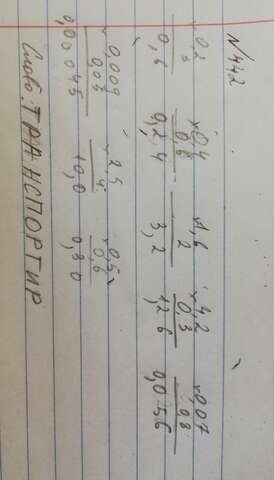 N 442
×0,2 ×0,4 ×1,6 ×4,2 ×0,07
3 0,6 2 0,3 0,8
0,6 0,24 3,2 1,26 0,056
×0,009 ×2,5 ×0,5
0,005 4 0,6
0,000045 10,0 0,30
Слово: ТРАНСПОРТИР